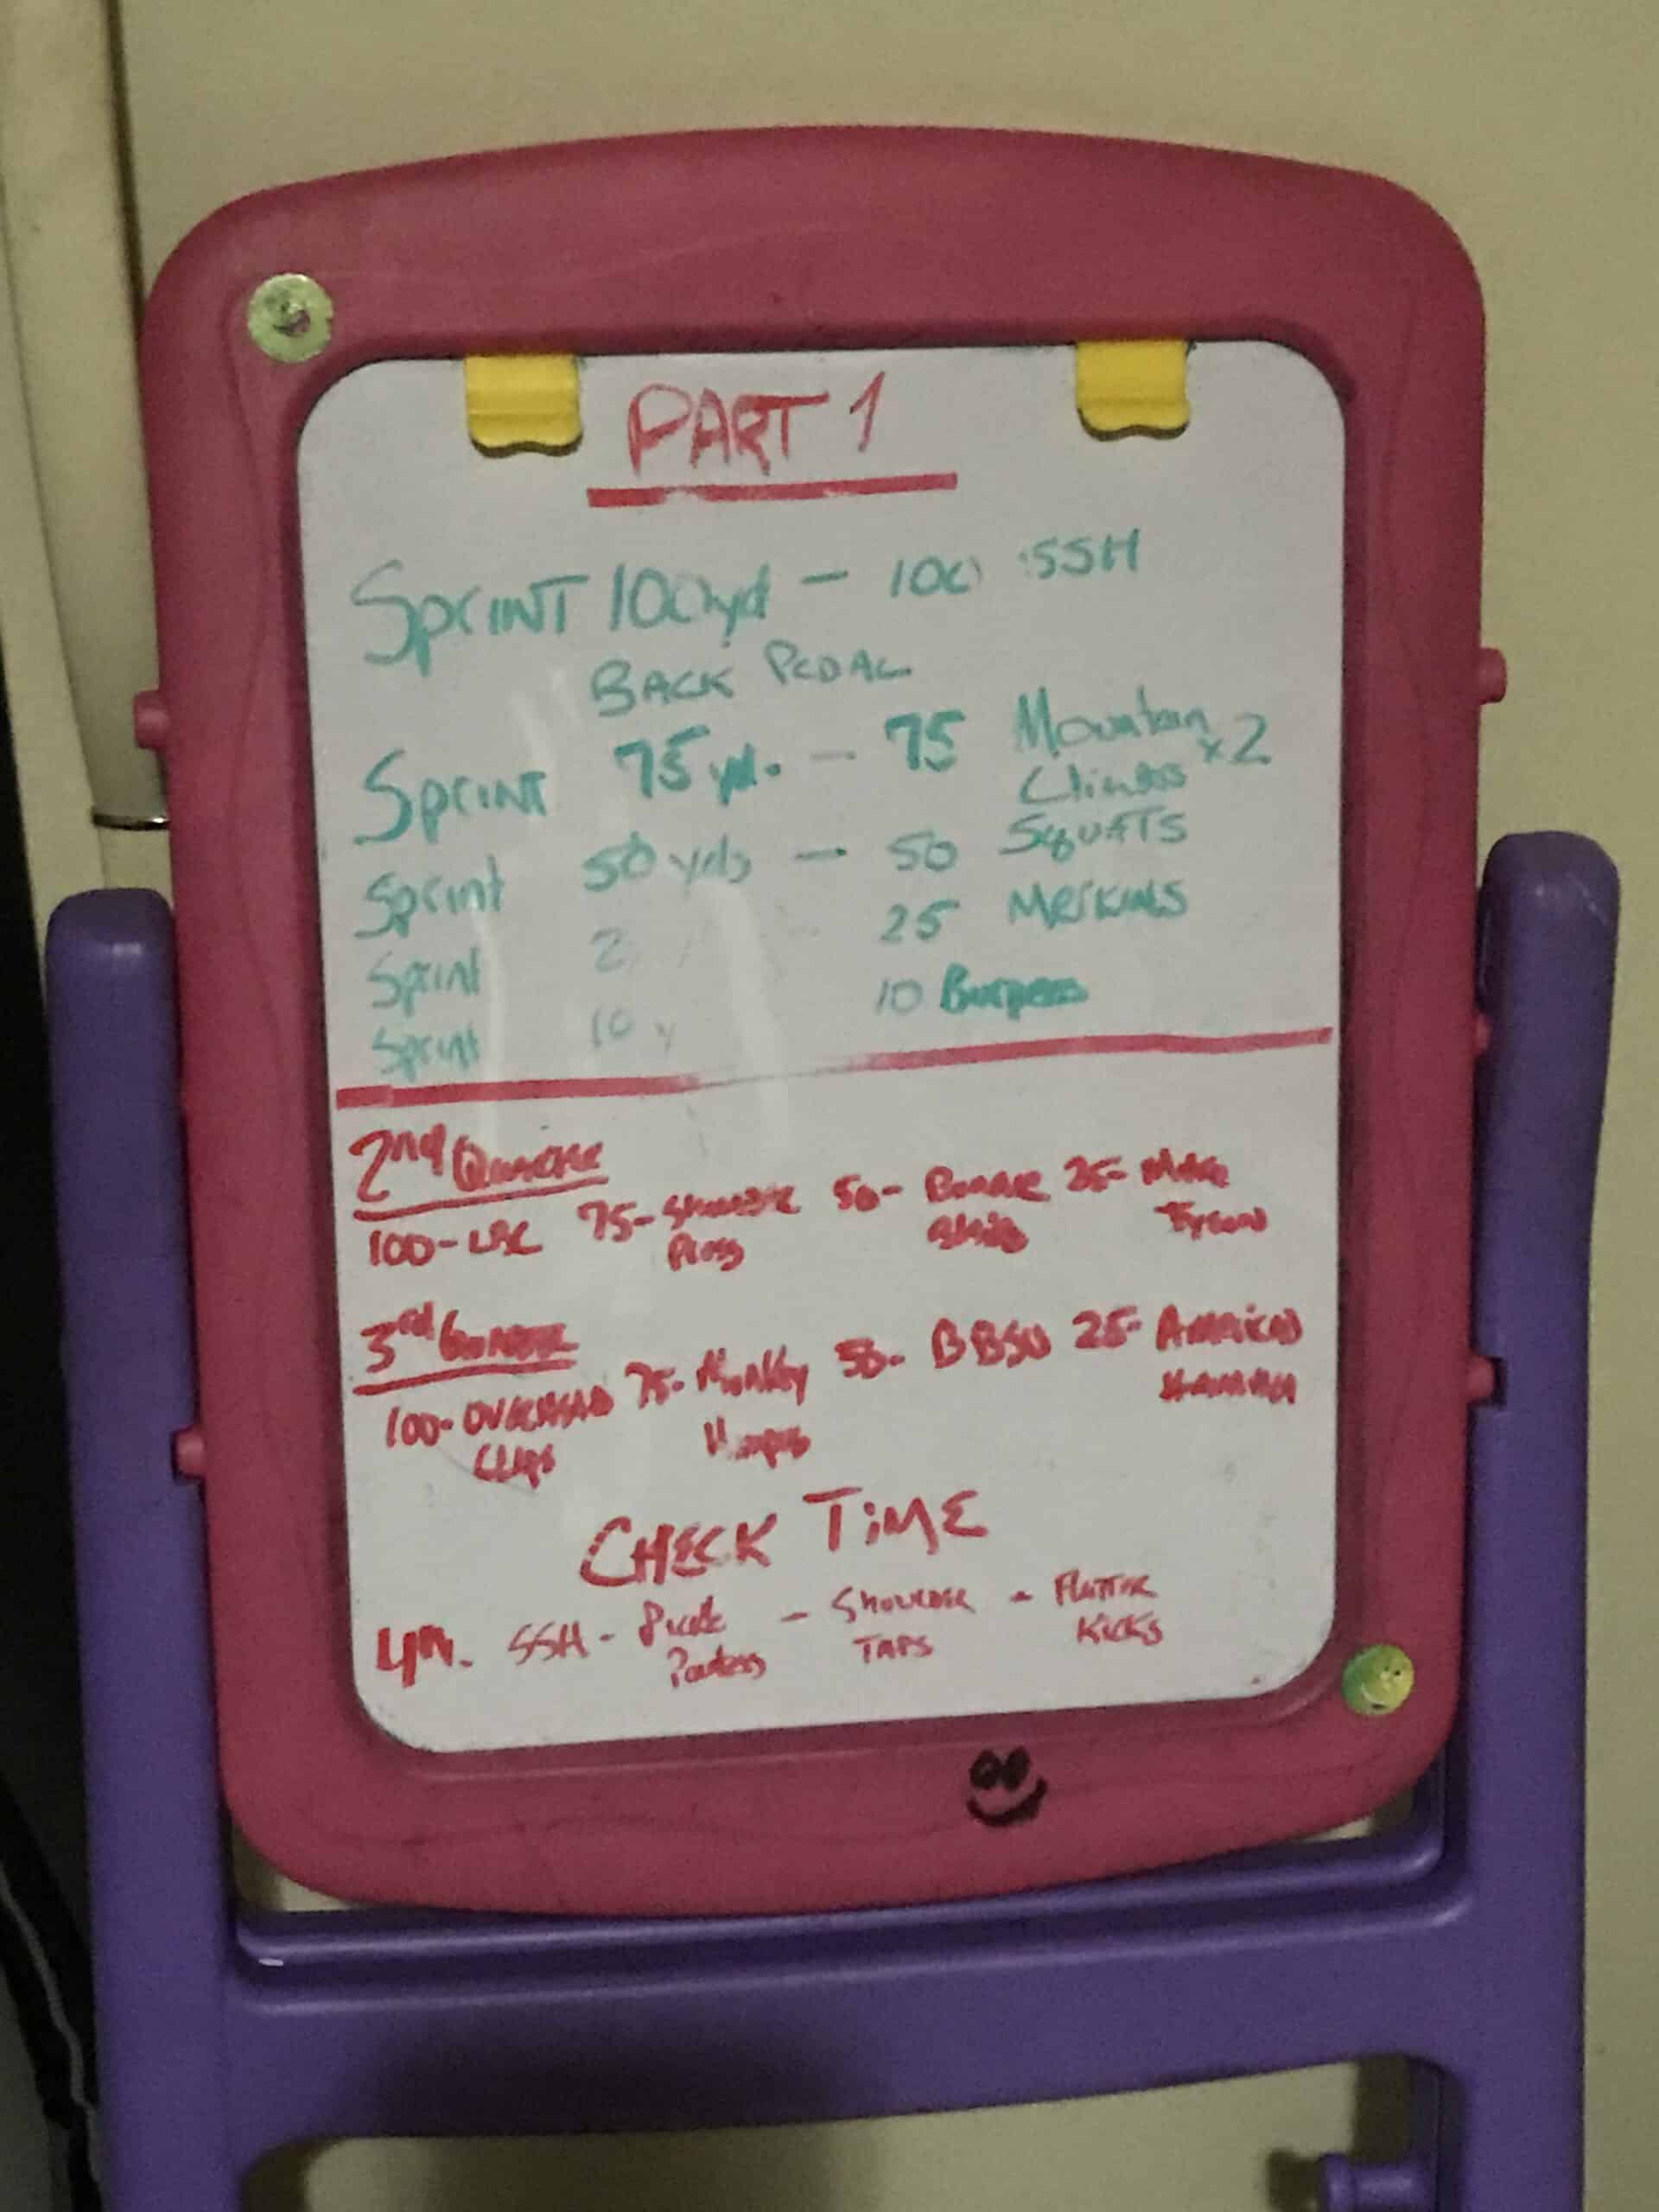 PART 1
SPRINT 100yd - 100 SSH
BACK PEDAL
SPRINT 75 yd. - 75 Mountain Climbers x2
Sprint 50 yds - 50 SQUATS
Sprint 2 25 MERKINS
Sprint 10 y 10 Burpees
2nd Quarter
100- LBC 75- Shoulder Press 50- Bonnie Blair 25- Mike Tyson
3rd Quarter
100- OVERHEAD CLAPS 75- Monkey Humpers 50- BBSU 25- American Hammer
CHECK TIME
4th. SSH - Pickle Pounders - Shoulder TAPS - Flutter Kicks